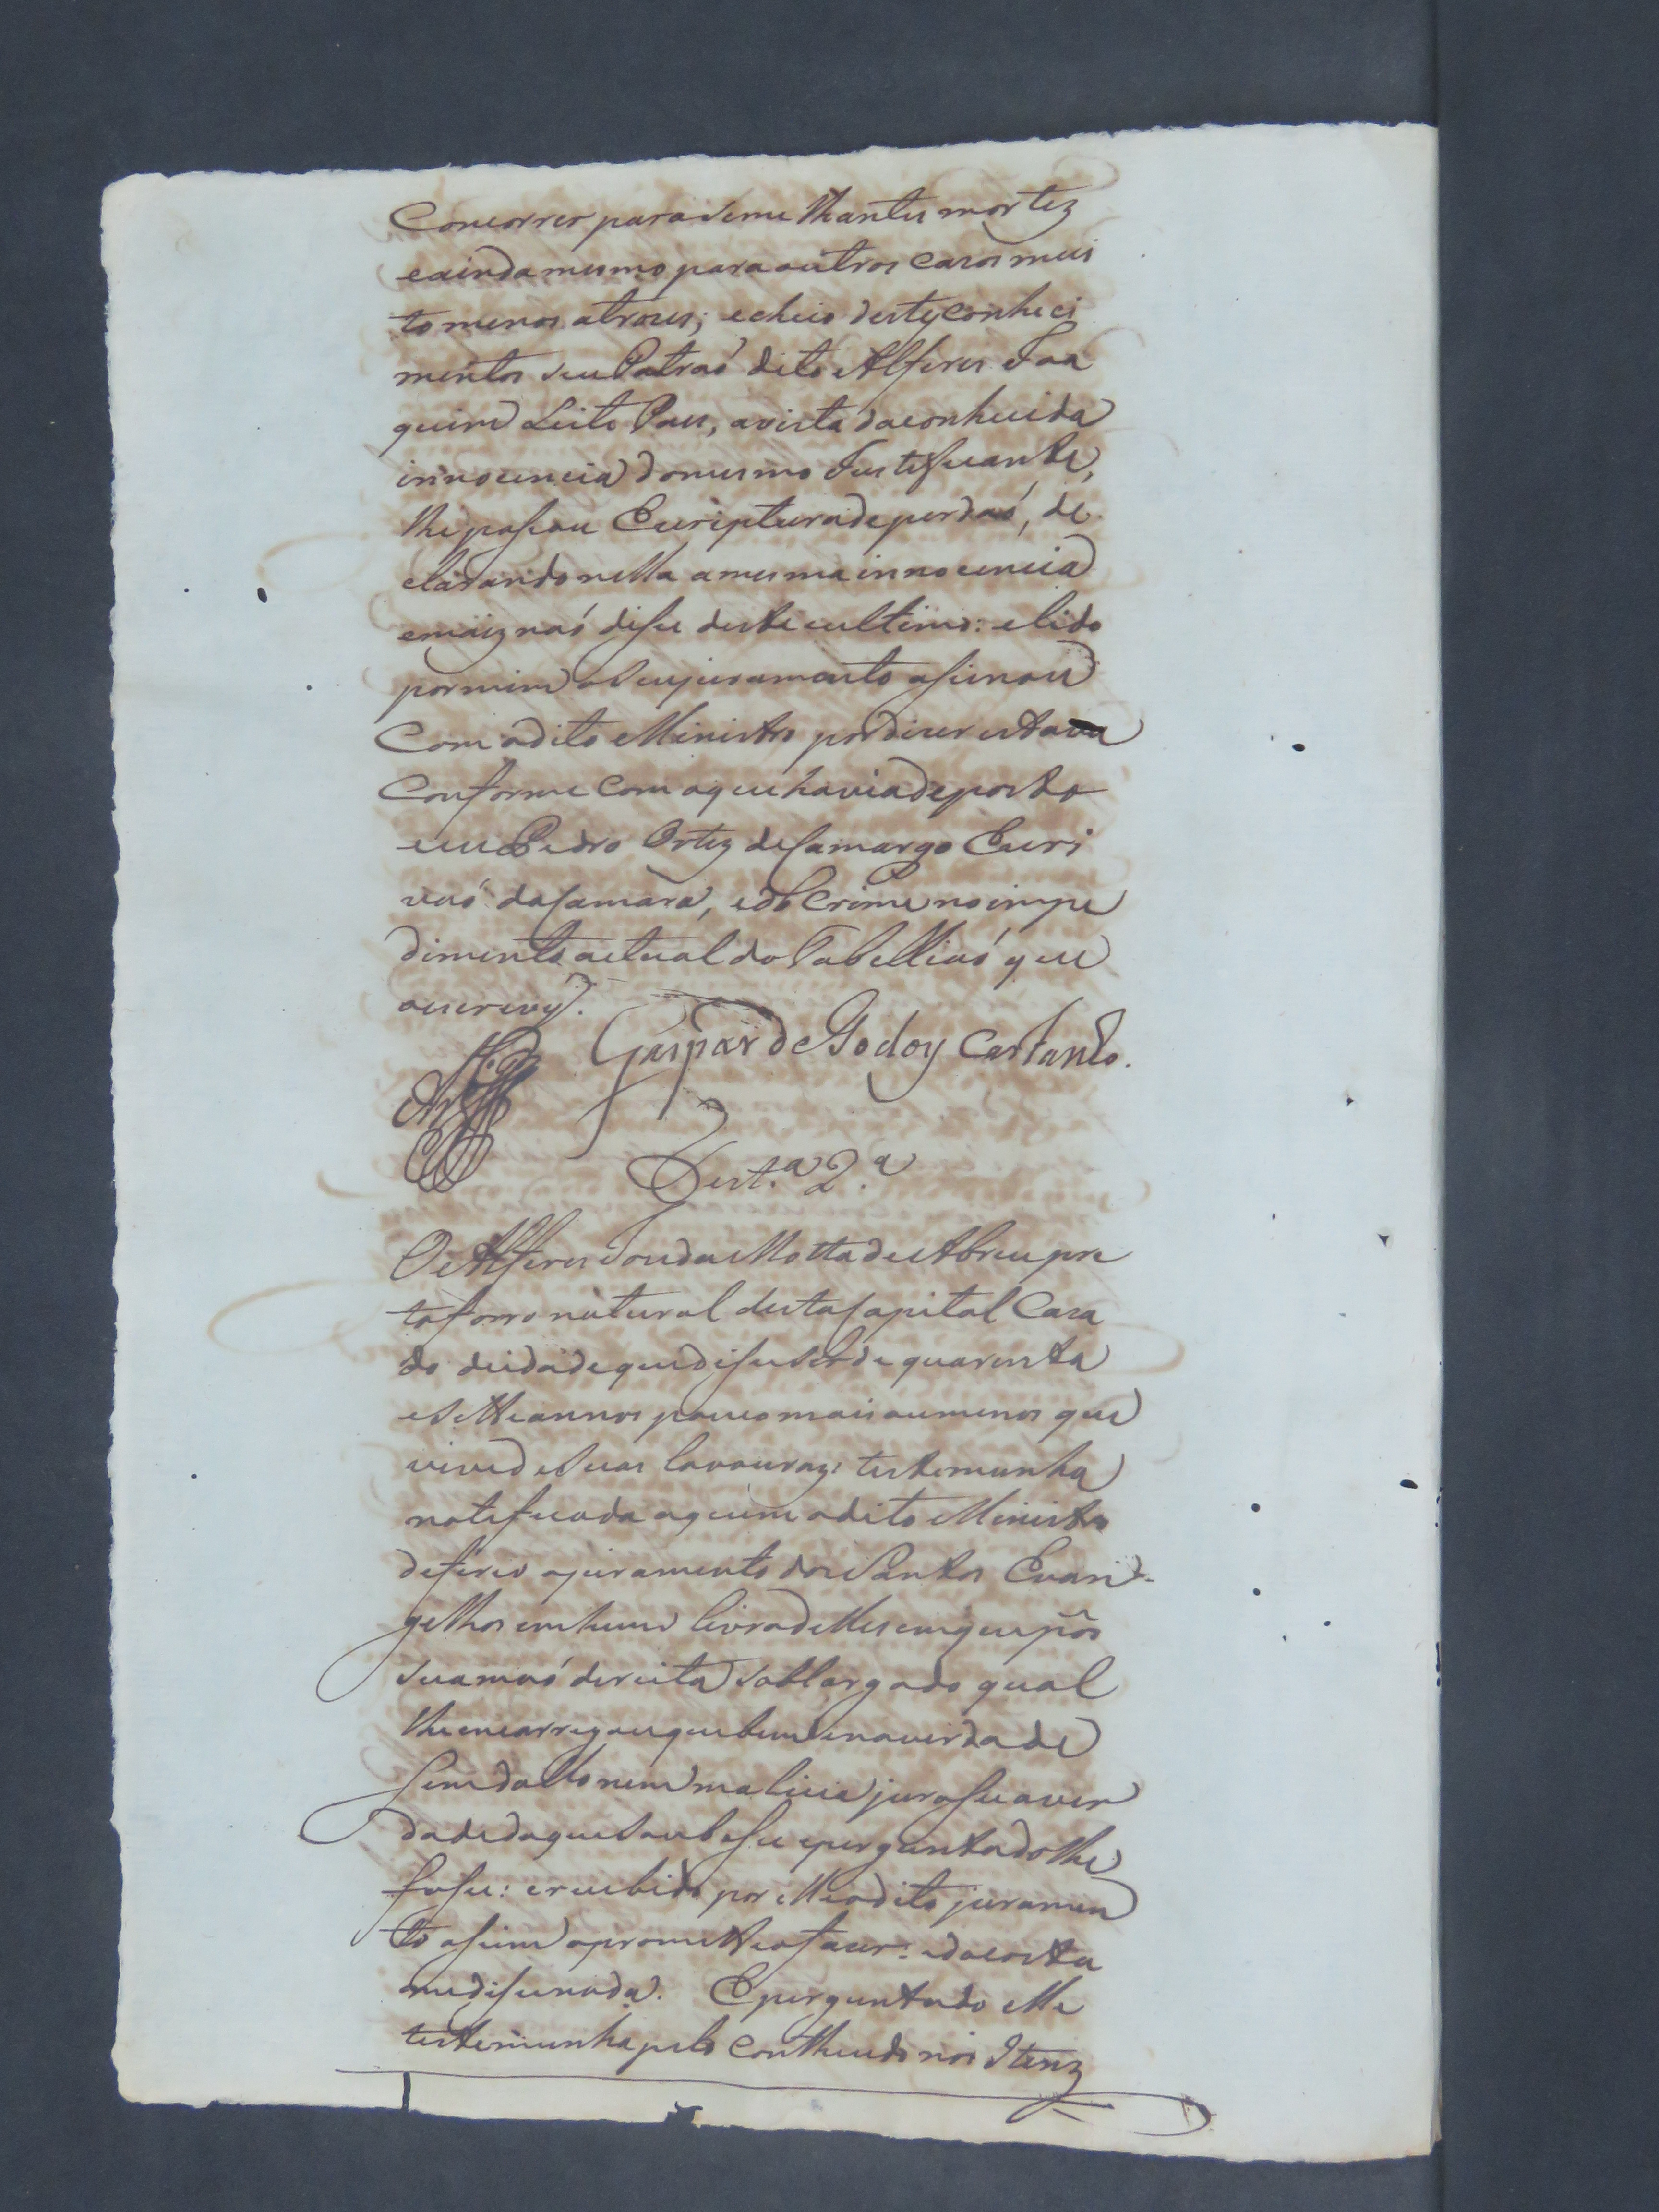 Concorrer para semelhantes mortez
e ainda mesmo para outros casos mui
to menos atroces; e cheio destes conheci
mentos seu Patraó dito Alferes Joa
quim Leite Paes, a vista da conhecida
innocencia do mesmo Justeficante,
lhe passou Escriptura de perdaó, de
clarando nella a mesma innocencia
e maiz naó disse deste ultimo: e lido
por mim o seu juramento assinou
Com o dito Ministro por dizer estava
Conforme Com o que havia deposto
eu Pedro Ortiz de Camargo Escri
vaó da Camara, e do Crime no impe
dimento actual do Tabelliaó que
o escrevy.
Gaspar de Godoy Castanho.
Test.ª 2.ª
O Alferes Joze da Motta de Abreu pre
to forro natural desta Capital Caza
do de idade que disse ser de quarenta
e sette annos pouco mais ou menos que
vive de suas lavouraz: testemunha
noteficada a quem o dito Ministro
deferio o juramento dos Santos Evan-
gelhos em hum livro delles em que pôs
sua maó direita sob cargo do qual
lhe encarregou que bem e na verdade
sem dollo nem malicia jurasse a ver
dade do que soubesse e perguntado lhe
fosse: e recebido por elle o dito juramen
to assim o prometteo fazer: e do costu
me disse nada. E perguntado elle
testemunha pelo contheudo nos Itenz